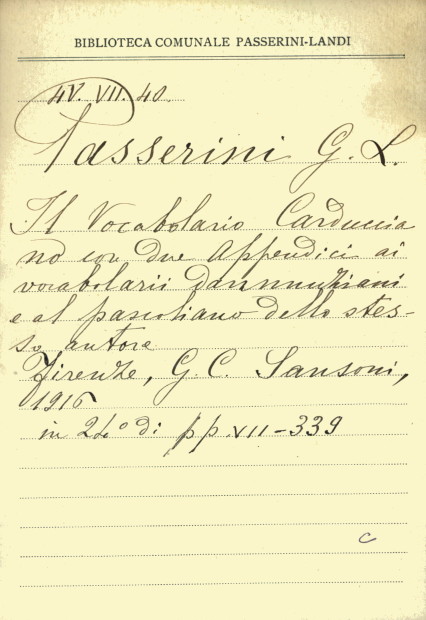 BIBLIOTECA COMUNALE PASSERINI-LANDI
4V. VII. 40.
Passerini G. L.
Il Vocabolario Carduccia
no con due Appendici ai
vocabolarii dannunziani
e al pascoliano dello stes-
so autore
Firenze, G. C. Sansoni,
1916
in 24° di pp. VII-339
C